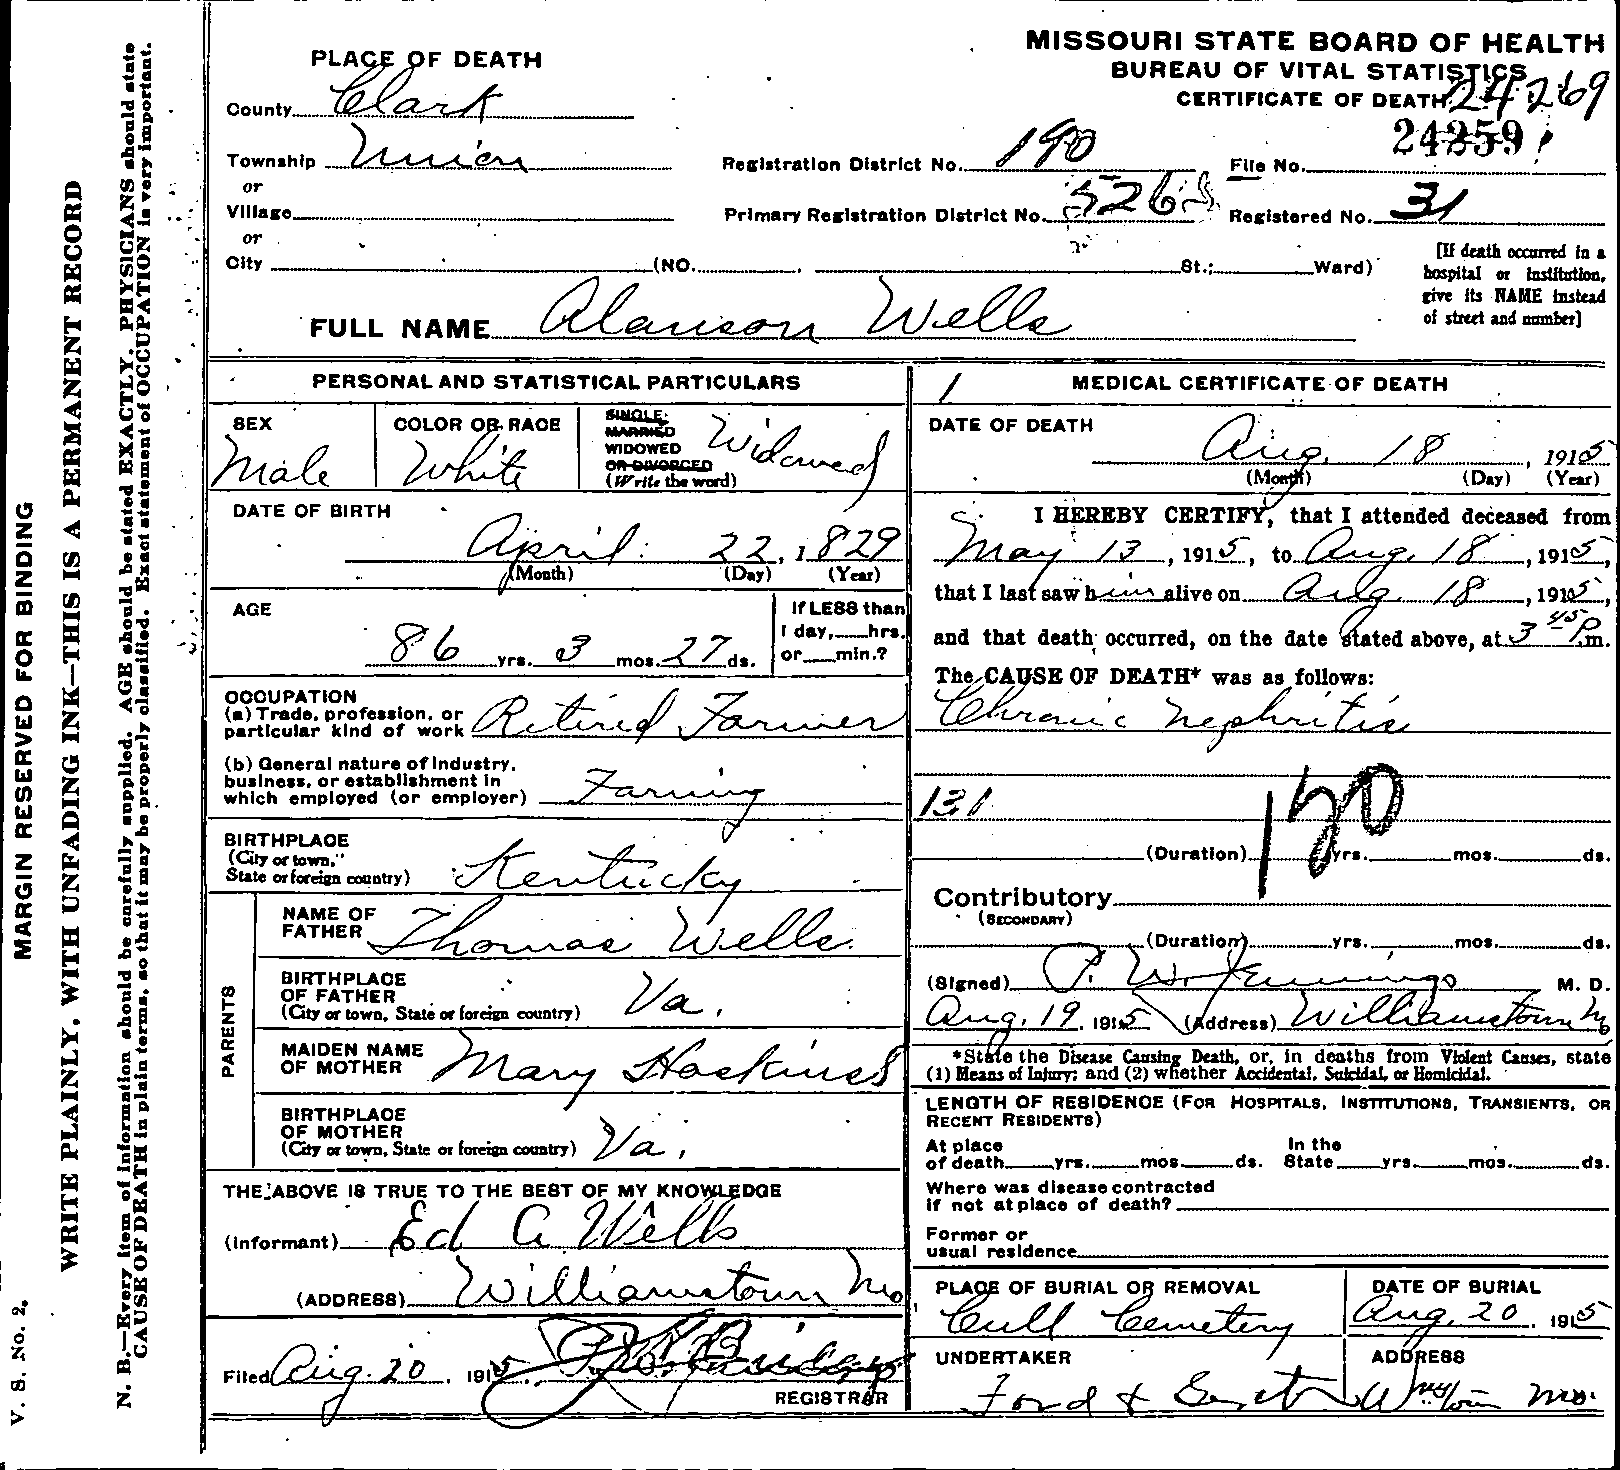 MISSOURI STATE BOARD OF HEALTH
BUREAU OF VITAL STATISTICS
CERTIFICATE OF DEATH
24269
24259
PLACE OF DEATH
County Clark
Township Union
or
Village
or
City (NO. St.; Ward)
Registration District No. 190
File No.
Primary Registration District No. 5268
Registered No. 31
[If death occurred in a
hospital or institution,
give its NAME instead
of street and number]
FULL NAME Alanson Wells
PERSONAL AND STATISTICAL PARTICULARS
SEX
Male
COLOR OR RACE
White
SINGLE
MARRIED
WIDOWED
OR DIVORCED
(Write the word)
Widowed
DATE OF BIRTH
April 22, 1829
(Month) (Day) (Year)
AGE
86 yrs. 3 mos. 27 ds.
If LESS than
1 day, hrs.
or min.?
OCCUPATION
(a) Trade, profession, or
particular kind of work Retired Farmer
(b) General nature of industry,
business, or establishment in
which employed (or employer) Farming
BIRTHPLACE
(City or town,
State or foreign country) Kentucky
PARENTS
NAME OF
FATHER Thomas Wells
BIRTHPLACE
OF FATHER
(City or town, State or foreign country) Va.
MAIDEN NAME
OF MOTHER Mary Hoskins
BIRTHPLACE
OF MOTHER
(City or town, State or foreign country) Va.
THE ABOVE IS TRUE TO THE BEST OF MY KNOWLEDGE
(Informant) Ed A Wells
(ADDRESS) Williamstown Mo
Filed Aug. 20, 1915
REGISTRAR
1
MEDICAL CERTIFICATE OF DEATH
DATE OF DEATH
Aug. 18, 1915
(Month) (Day) (Year)
I HEREBY CERTIFY, that I attended deceased from
May 13, 1915, to Aug. 18, 1915,
that I last saw him alive on Aug. 18, 1915,
and that death occurred, on the date stated above, at 3 45 P.m.
The CAUSE OF DEATH* was as follows:
Chronic Nephritis
131
120
(Duration) yrs. mos. ds.
Contributory
(SECONDARY)
(Duration) yrs. mos. ds.
(Signed) P. W. Jennings M. D.
Aug. 19, 1915 (Address) Williamstown Mo
*State the Disease Causing Death, or, in deaths from Violent Causes, state
(1) Means of Injury; and (2) whether Accidental, Suicidal, or Homicidal.
LENGTH OF RESIDENCE (FOR HOSPITALS, INSTITUTIONS, TRANSIENTS, OR
RECENT RESIDENTS)
At place
of death yrs. mos. ds.
In the
State yrs. mos. ds.
Where was disease contracted
if not at place of death?
Former or
usual residence
PLACE OF BURIAL OR REMOVAL
Cull Cemetery
DATE OF BURIAL
Aug. 20, 1915
UNDERTAKER
Ford &
ADDRESS
Wmstown Mo.
MARGIN RESERVED FOR BINDING
WRITE PLAINLY, WITH UNFADING INK—THIS IS A PERMANENT RECORD
N. B.—Every item of information should be carefully supplied. AGE should be stated EXACTLY. PHYSICIANS should state
CAUSE OF DEATH in plain terms, so that it may be properly classified. Exact statement of OCCUPATION is very important.
V. S. No. 2.